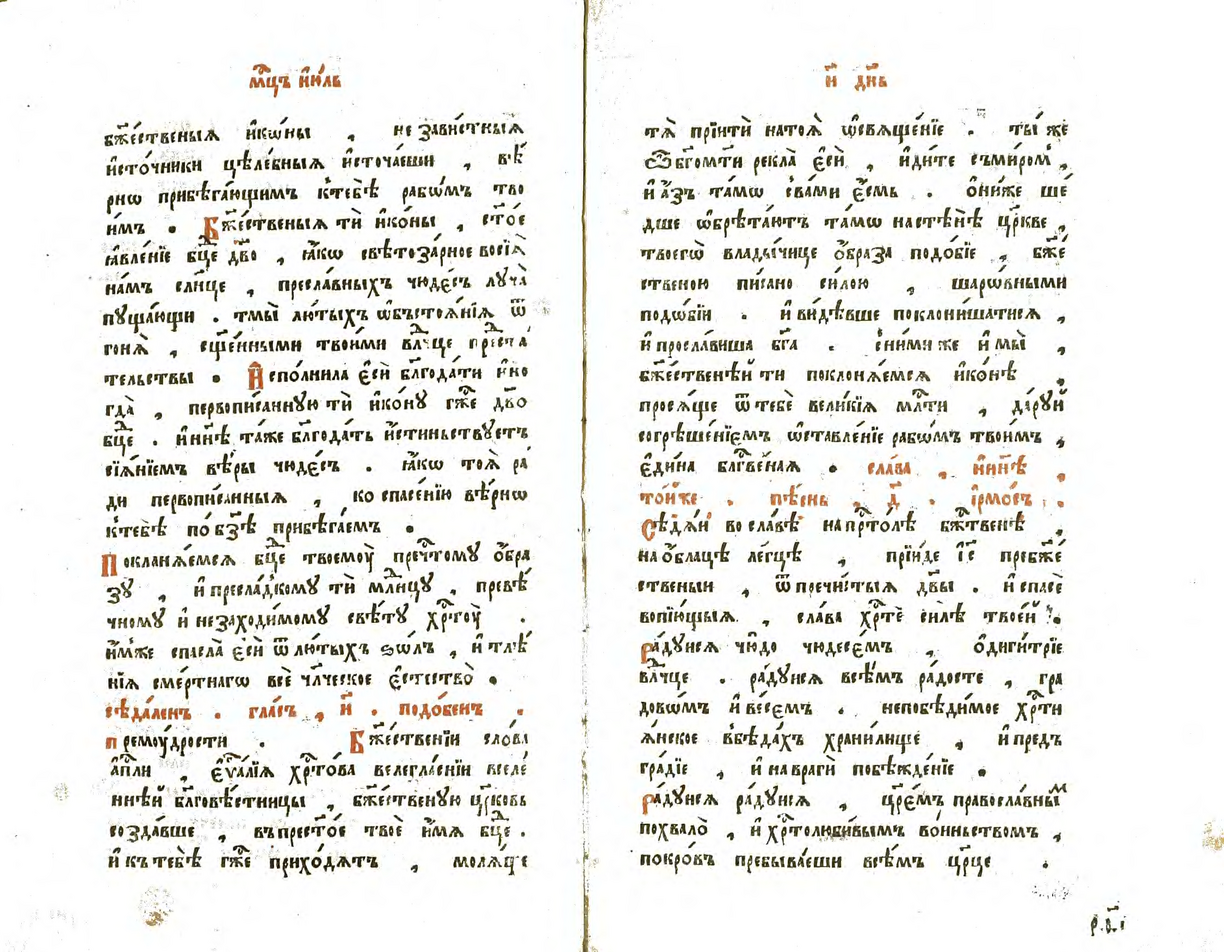 мⷭ҇цъ і҆ю́ль
бж҃е́ственыѧ и҆ко́ны , не зави́стныѧ
и҆сто́чники цѣле́бныѧ и҆сточа́еши , вѣ́
рнѡ прибѣга́ющимъ к̾тебѣ̀ рабѡ́мъ тво
и́мъ . Бж҃е́ственыѧ тѝ и҆ко́ны , ст҃о́е
ꙗ҆вле́нїе бц҃е дв҃о , ꙗ҆́кѡ свѣтоза́рное восїѧ̀
на́мъ сл҃нце , пресла́вныхъ чюде́съ лꙋча̀
пꙋща́ющи . тмы̀ лю́тыхъ ѡ҆бъстоѧ́нїѧ ѿ
гонѧ̀ , сщ҃е́нными твои́ми вл҃чце предста́
тельствы . И҆спо́лнила є҆сѝ бл҃года́ти и҆но
гда̀ , первопи́саннꙋю тѝ и҆ко́нꙋ гж҃е дв҃о
бц҃е . и҆ нн҃ѣ та́же бл҃года́ть и҆́стиньствꙋетъ
сїѧ́нїемъ вѣ́ры чюде́съ . ꙗ҆́кѡ тоѧ̀ ра́
ди первопи́санныѧ , ко спасе́нїю вѣ́рнѡ
к̾тебѣ̀ по бз҃ѣ прибѣга́емъ .
Покланѧ́емсѧ бц҃е твоемꙋ̀ пречⷭ҇томꙋ ѻ҆́бра
зꙋ , и҆ пресла́дкомꙋ тѝ млⷣнцꙋ , превѣ́
чномꙋ и҆ незаходи́момꙋ свѣ́тꙋ хрⷭ҇тꙋ̀ .
и҆́мже спасла̀ є҆сѝ ѿ лю́тыхъ ѕѡ́лъ , и҆ тлѣ́
нїѧ сме́ртнагѡ всѐ чл҃ческое є҆стество̀ .
сѣда́ленъ . гла́съ , и҃ . подо́бенъ .
премоу́дрости . Бж҃е́ственїи сло́ва
а҆пⷭ҇ли , є҆ѵⷢ҇лїѧ хрⷭ҇то́ва велегла́снїи вселе́
ннѣй бл҃говѣ́стницы , бж҃е́ственꙋю цр҃ковь
созда́вше , въ прест҃о́е твоѐ и҆́мѧ бц҃е .
и҆ къ тебѣ̀ гж҃е прихо́дѧтъ , молѧ́ще
и҃ дн҃ь
тѧ̀ прїитѝ на тоѧ̀ ѡ҆свѧще́нїе . ты́ же
ѽ бг҃ом҃ти рекла̀ є҆сѝ , и҆ди́те съ ми́ромъ ,
и҆ а҆́зъ та́мѡ с̾ва́ми є҆́смь . ѻ҆ни́же ше́
дше ѡ҆брѣта́ютъ та́мѡ на стѣнѣ̀ цр҃кве ,
твоегѡ̀ влады́чице ѻ҆́браза подо́бїе , бж҃е́
ственою пи́сано си́лою , шарѡ́вными
подѡ́бїи . и҆ ви́дѣвше поклони́шатисѧ ,
и҆ просла́виша бг҃а . с̾ни́ми же и҆ мы̀ ,
бж҃е́ственѣй ти поклонѧ́емсѧ и҆ко́нѣ ,
просѧ́ще ѿ тебѐ вели́кїѧ млⷭ҇ти , да́рꙋй
согрѣше́нїемъ ѡ҆ставле́нїе рабѡ́мъ твои́мъ ,
є҆ди́на бл҃гве́наѧ . сла́ва , и҆ нн҃ѣ ,
то́йже . пѣ́снь , д҃ . і҆рмо́съ .
Сѣдѧ́й во сла́вѣ на прⷭ҇то́лѣ бжⷭ҇твенѣ ,
на ѻ҆́блацѣ ле́гцѣ , прїи́де і҆с҃ пребж҃е́
ственыи , ѿ пречи́стыѧ дв҃ы . и҆ спасѐ
вопїю́щыѧ , сла́ва хрⷭ҇тѐ си́лѣ твое́й .
Ра́дꙋисѧ чю́до чюдесе́мъ , ѻ҆диги́трїе
вл҃чце . ра́дꙋисѧ всѣ́мъ ра́досте , гра
довѡ́мъ и҆ весе́мъ . непобѣди́мое хрⷭ҇ти
ѧ́нское в̾бѣда́хъ храни́лище , и҆ предъ
гра́дїе , и҆ на врагѝ побѣжде́нїе .
Ра́дꙋисѧ ра́дꙋисѧ , цр҃е́мъ правосла́вны́м
похвало̀ , и҆ хрⷭ҇толюби́вымъ во́иньствомъ ,
покро́въ пребыва́еши всѣ́мъ цр҃це .